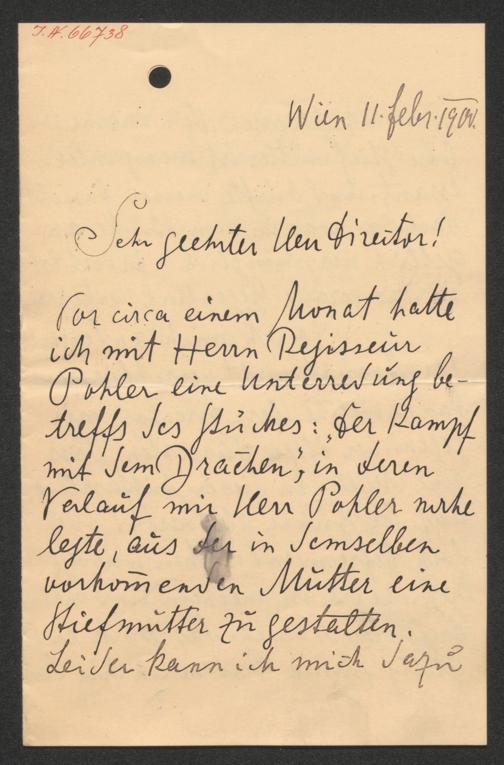 I.N. 66738
Wien 11. febr. 1901.
Sehr geehrter Herr Director!
Vor circa einem Monat hatte
ich mit Herrn Regisseur
Pohler eine Unterredung be-
treffs des Stückes: „Der Kampf
mit dem Drachen“, in deren
Verlauf mir Herr Pohler nahe
legte, aus der in demselben
vorkom̅enden Mutter eine
Stiefmutter zu gestalten.
Leider kann ich mich dazu